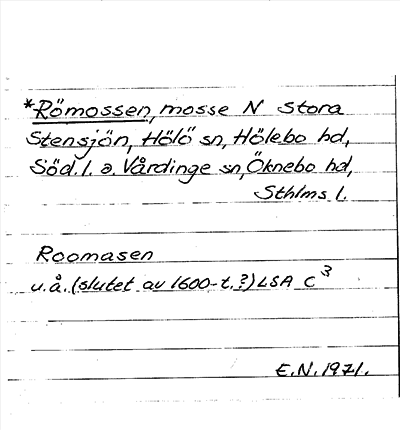 *Römossen, mosse N Stora
Stensjön, Hölö sn, Hölebo hd,
Söd. l. o. Vårdinge sn, Öknebo hd,
Sthlms l.
Roomasen
u.å. (slutet av 1600-t.?) LSA C³
E.N. 1971.